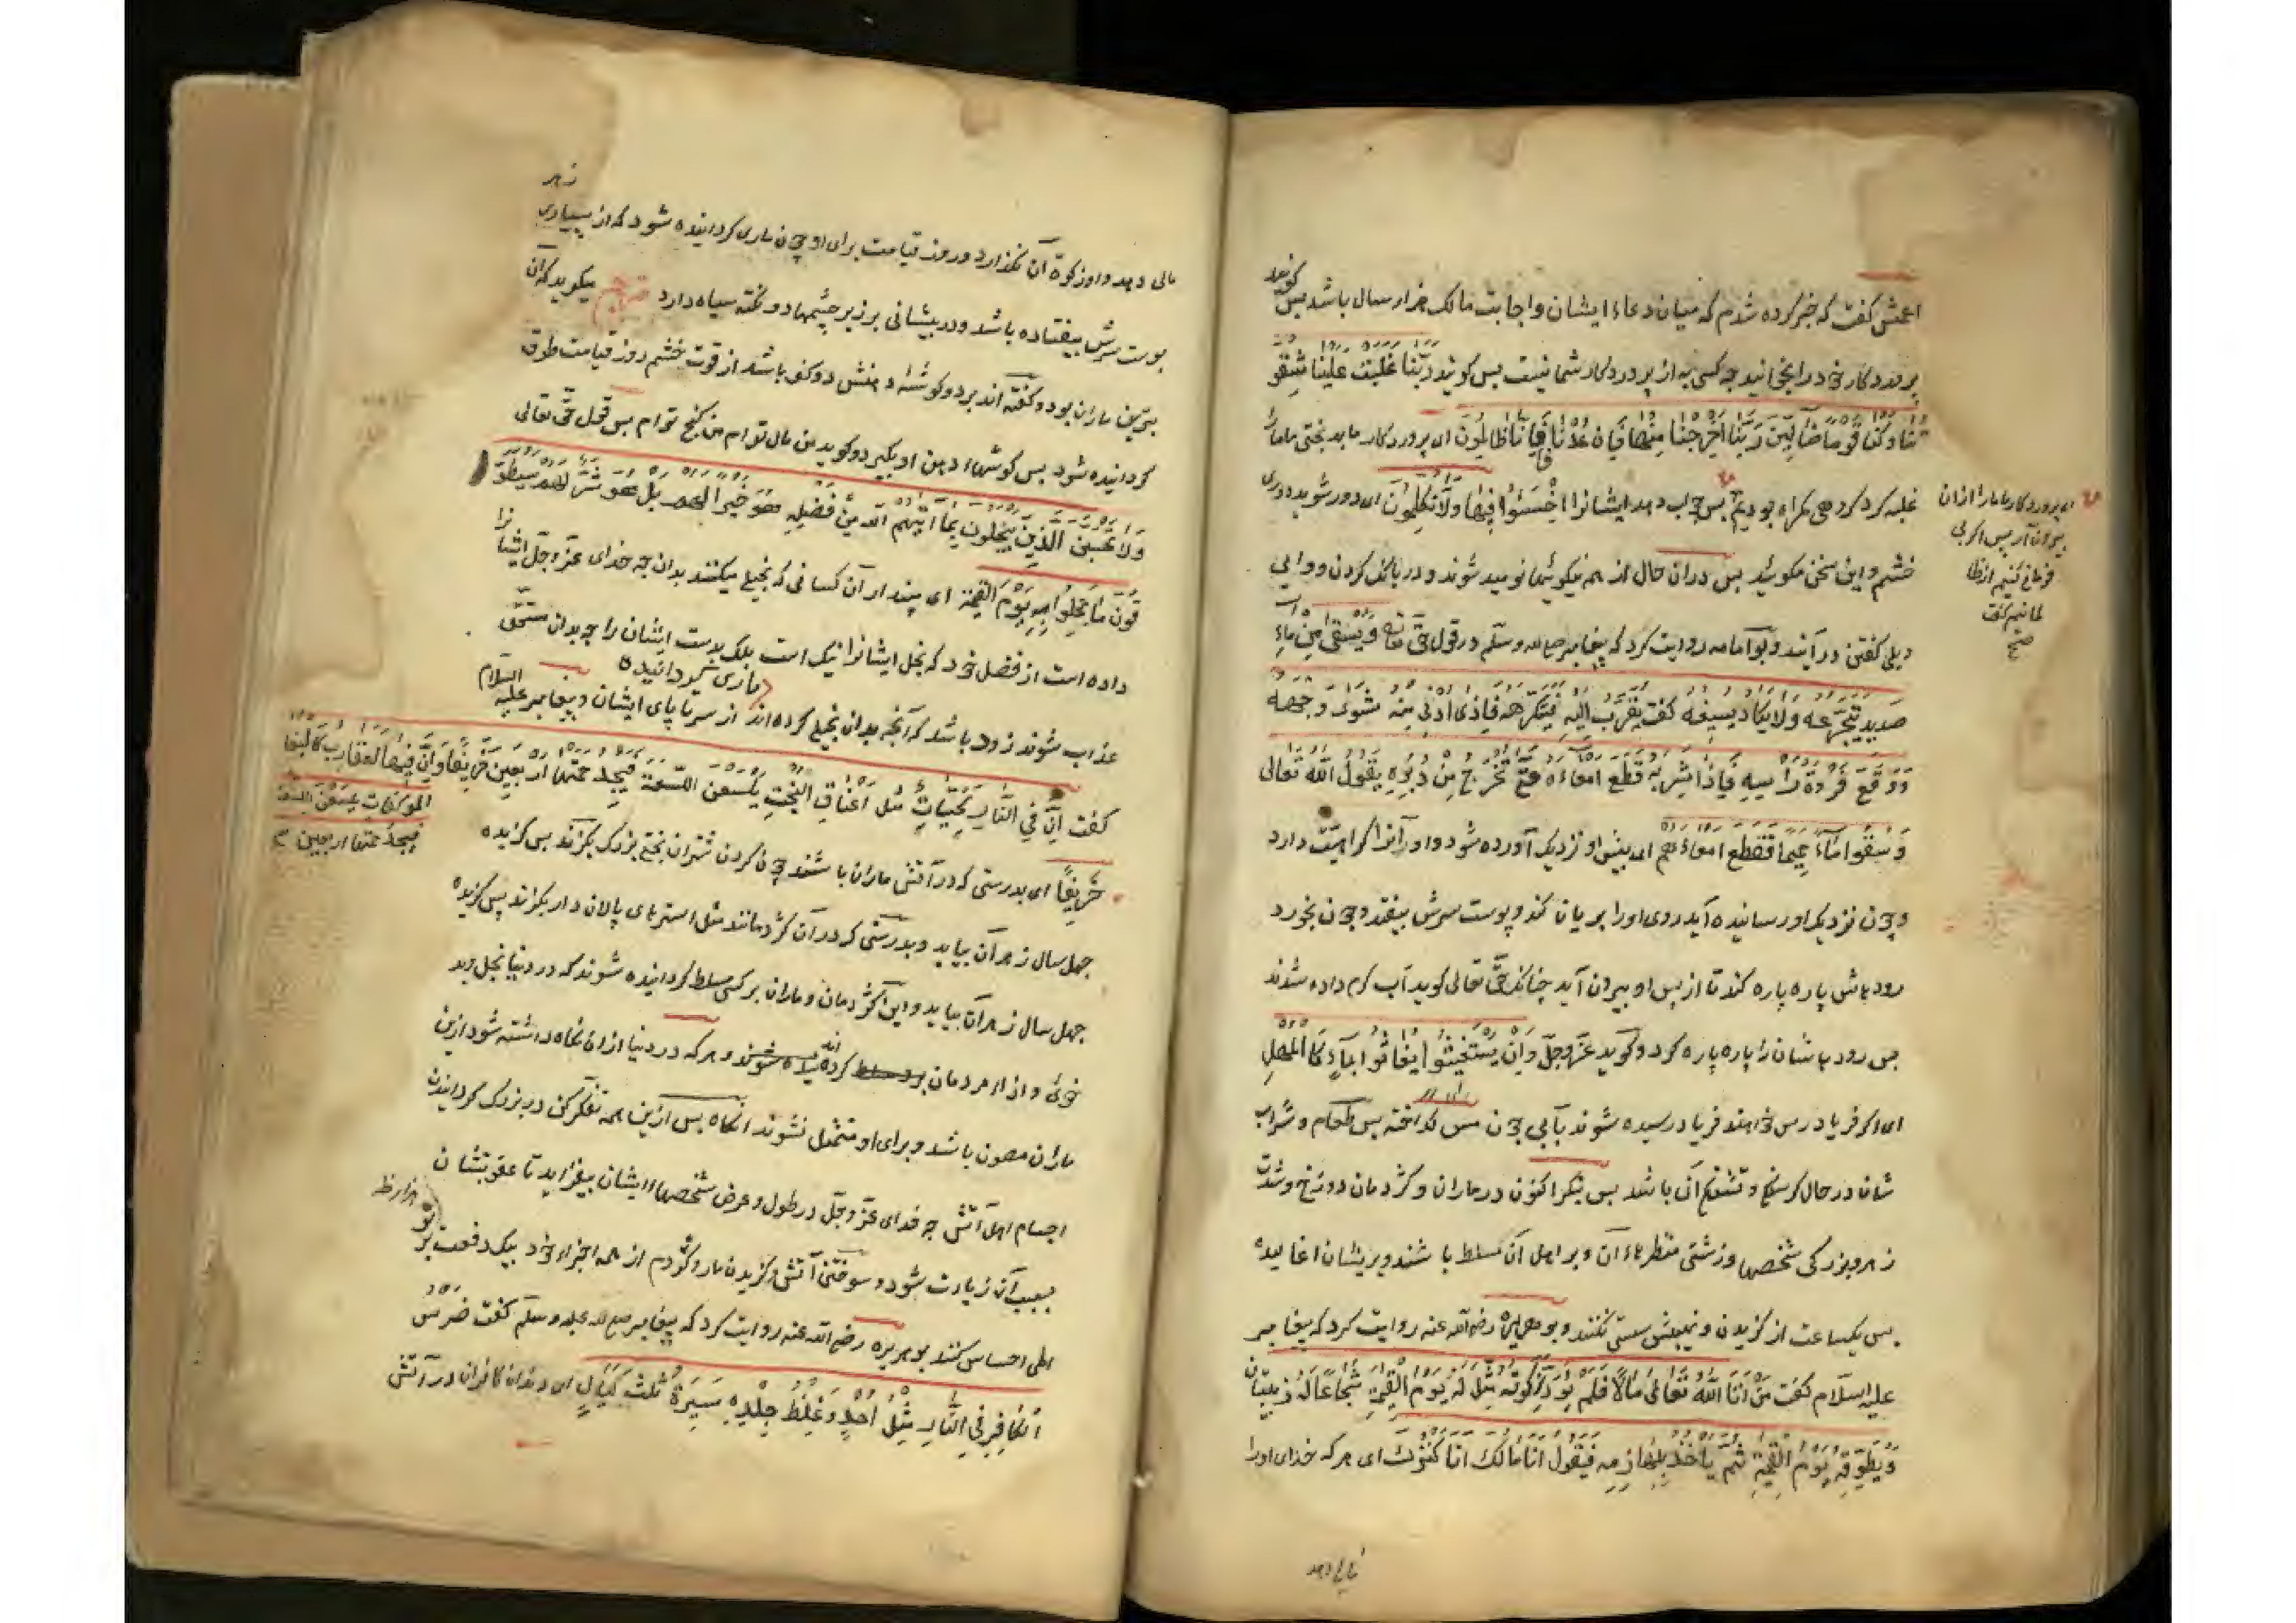 اعمش گفت که خبر کرده شدم که میان دعاء ایشان و اجابت مالک هزار سال باشد پس گویند
پروردکار خود را بخوانید چه کسی به از پروردکار شما نیست پس کویند رَبَّنَا غَلَبَتْ عَلَيْنَا شِقْوَ
تُنَا وَكُنَّا قَوْمًا ضَالِّينَ رَبَّنَا أَخْرِجْنَا مِنْهَا فَإِنْ عُدْنَا فَإِنَّا ظَالِمُونَ ای پروردکار ما بدبختی ما ما را
غلبه کرد کردهی کمراه بودیم پس جواب دهد ایشانرا اخْسَئُوا فِيهَا وَلَا تُكَلِّمُونِ ای دور شوید دری
ای پروردکار ما ما را ازان
بیرون آر پس اکر بی
فرمانی کنیم از ظا
لمانیم کفت
صح
خشم و این سخن مکوئید پس دران حال از همه نیکوئیها نومید شوند و در بانک کردن و وای
ویلی کفتن درآیند و بوامامه روایت کرد که پیغامبر صلی الله وسلم در قول حق تعالی وَيُسْقَى مِنْ مَاءٍ
صَدِيدٍ يَتَجَرَّعُهُ وَلَا يَكَادُ يُسِيغُهُ کفت يُقَرَّبُ إِلَيْهِ فَيَتَكَرَّهُهُ فَإِذَا أُدْنِيَ مِنْهُ شَوَى وَجْهَهُ
وَوَقَعَ فَرْوَةُ رَأْسِهِ فَإِذَا شَرِبَهُ قَطَعَ أَمْعَاءَهُ حَتَّى تَخْرُجَ مِنْ دُبُرِهِ يَقُولُ اللَّهُ تَعَالَى
وَسُقُوا مَاءً حَمِيمًا فَقَطَّعَ أَمْعَاءَهُمْ ای پیش او نزدیک آورده شود و او آنرا کراهیت دارد
و چون نزدیک او رسانیده آید روی او را بریان کند و پوست سرش بیفتد و چون بخورد
رودهاش پاره پاره کند تا از پس او بیرون آید چنانک حق تعالی کوید آب کرم داده شدند
پس رودهاشان را پاره پاره کرد و کوید عز وجل وَإِنْ يَسْتَغِيثُوا يُغَاثُوا بِمَاءٍ كَالْمُهْلِ
ای اکر فریادرس خواهند فریاد رسیده شوند بآبی چون مس کداخته پس طعام و شراب
شان در حال کرسنکی و تشنکی آن باشد پس بنکر اکنون در ماران و کژدمان دوزخ و شدت
زهر و بزرکی شخصها و زشتی منظرهاء آن و بر اهل آن مسلط باشند و بریشان اغالیده
پس یکساعت از کزیدن و نیش سستی نکنند و بوهریره رضی الله عنه روایت کرد که پیغامبر
علیه السلام کفت مَنْ أَتَاهُ اللَّهُ تَعَالَى مَالًا فَلَمْ يُؤَدِّ زَكَوتَهُ مُثِّلَ لَهُ يَوْمَ الْقِيمَةِ شُجَاعًا لَهُ زَبِيبَتَانِ
وَيُطَوَّقُهُ يَوْمَ الْقِيمَةِ ثُمَّ يَأْخُذُ بِلَهَازِمِهِ فَيَقُولُ أَنَا مَالُكَ أَنَا كَنْزُكَ ای هر که خدای او را
مالی دهد
زهر
مالی دهد و او زکوة آن نکذارد در روز قیامت برای او چون ماری کردانیده شود که از بسیاری
پوست سرش بیفتاده باشد و در پیشانی بر زبر چشمها دو نکته سیاه دارد میکوید که آن
بترین ماران بود و کفته اند بر دو کوشهٔ دهنش دو کف باشد از قوت خشم روز قیامت طوق
کردانیده شود پس کوشهاء دهن او بکیرد و کوید من مال توام من کنج توام پس قول حق تعالی
وَلَا تَحْسَبَنَّ الَّذِينَ يَبْخَلُونَ بِمَا آتَيهُمُ اللَّهُ مِنْ فَضْلِهِ هُوَ خَيْرًا لَهُمْ بَلْ هُوَ شَرٌّ لَهُمْ سَيُطَوَّ
قُونَ مَا بَخِلُوا بِهِ يَوْمَ الْقِيمَةِ ای مپندار آن کسانی که بخیلی میکنند بدان چه خدای عز وجل ایشا نرا
داده است از فضل خود که بخل ایشانرا نیک است بلک بد ست ایشان را چه بدان مستحق
ماری کردانیده
عذاب شوند زود باشد که آنچه بدان بخیلی کرده اند از سر تا پای ایشان و پیغامبر علیه السلام
کفت إِنَّ فِي النَّارِ لَحَيَّاتٍ مِثْلَ أَعْنَاقِ الْبُخْتِ يَلْسَعْنَ اللَّسْعَةَ فَيَجِدُ حُمَّتَهَا أَرْبَعِينَ خَرِيفًا وَإِنَّ فِيهَا لَعَقَارِبَ كَالْبِغَا
الموکفات یلسعن اللسعة
فیجد حمتها اربعین
خَرِيفًا ای بدرستی که در آتش ماران باشند چون کردن شتران بختی بزرک بکزند پس کزیده
چهل سال زهر آن بیابد و بدرستی که در آن کژدمانند مثل استرهای پالان دار بکزند پس کزیده
چهل سال زهر آن بیابد و این کژدمان و ماران بر کسی مسلط کردانیده شوند که در دنیا بخل و بد
خوئی و ایذاء مردمان برو مسلط کرده اند و هر که در دنیا ازان نکاه داشته شود ازین
ماران مصون باشد و برای او متمثل نشوند آنکاه پس ازین همه تفکر کن در بزرک کردانیدن
اجسام اهل آتش چه خدای عز وجل در طول و عرض شخصهاء ایشان بیفزاید تا عقوبتشان
بسبب آن زیادت شود و سوختن آتش و کزیدن مار و کژدم از همه اجزاء خود بیک دفعت بر تو
الی احساس کنند بوهریره رضی الله عنه روایت کرد که پیغامبر صلی الله علیه وسلم کفت ضِرْسُ
الْكَافِرِ فِي النَّارِ مِثْلُ أُحُدٍ وَغِلَظُ جِلْدِهِ مَسِيرَةُ ثَلَثِ لَيَالٍ ای دندان کافران در آتش